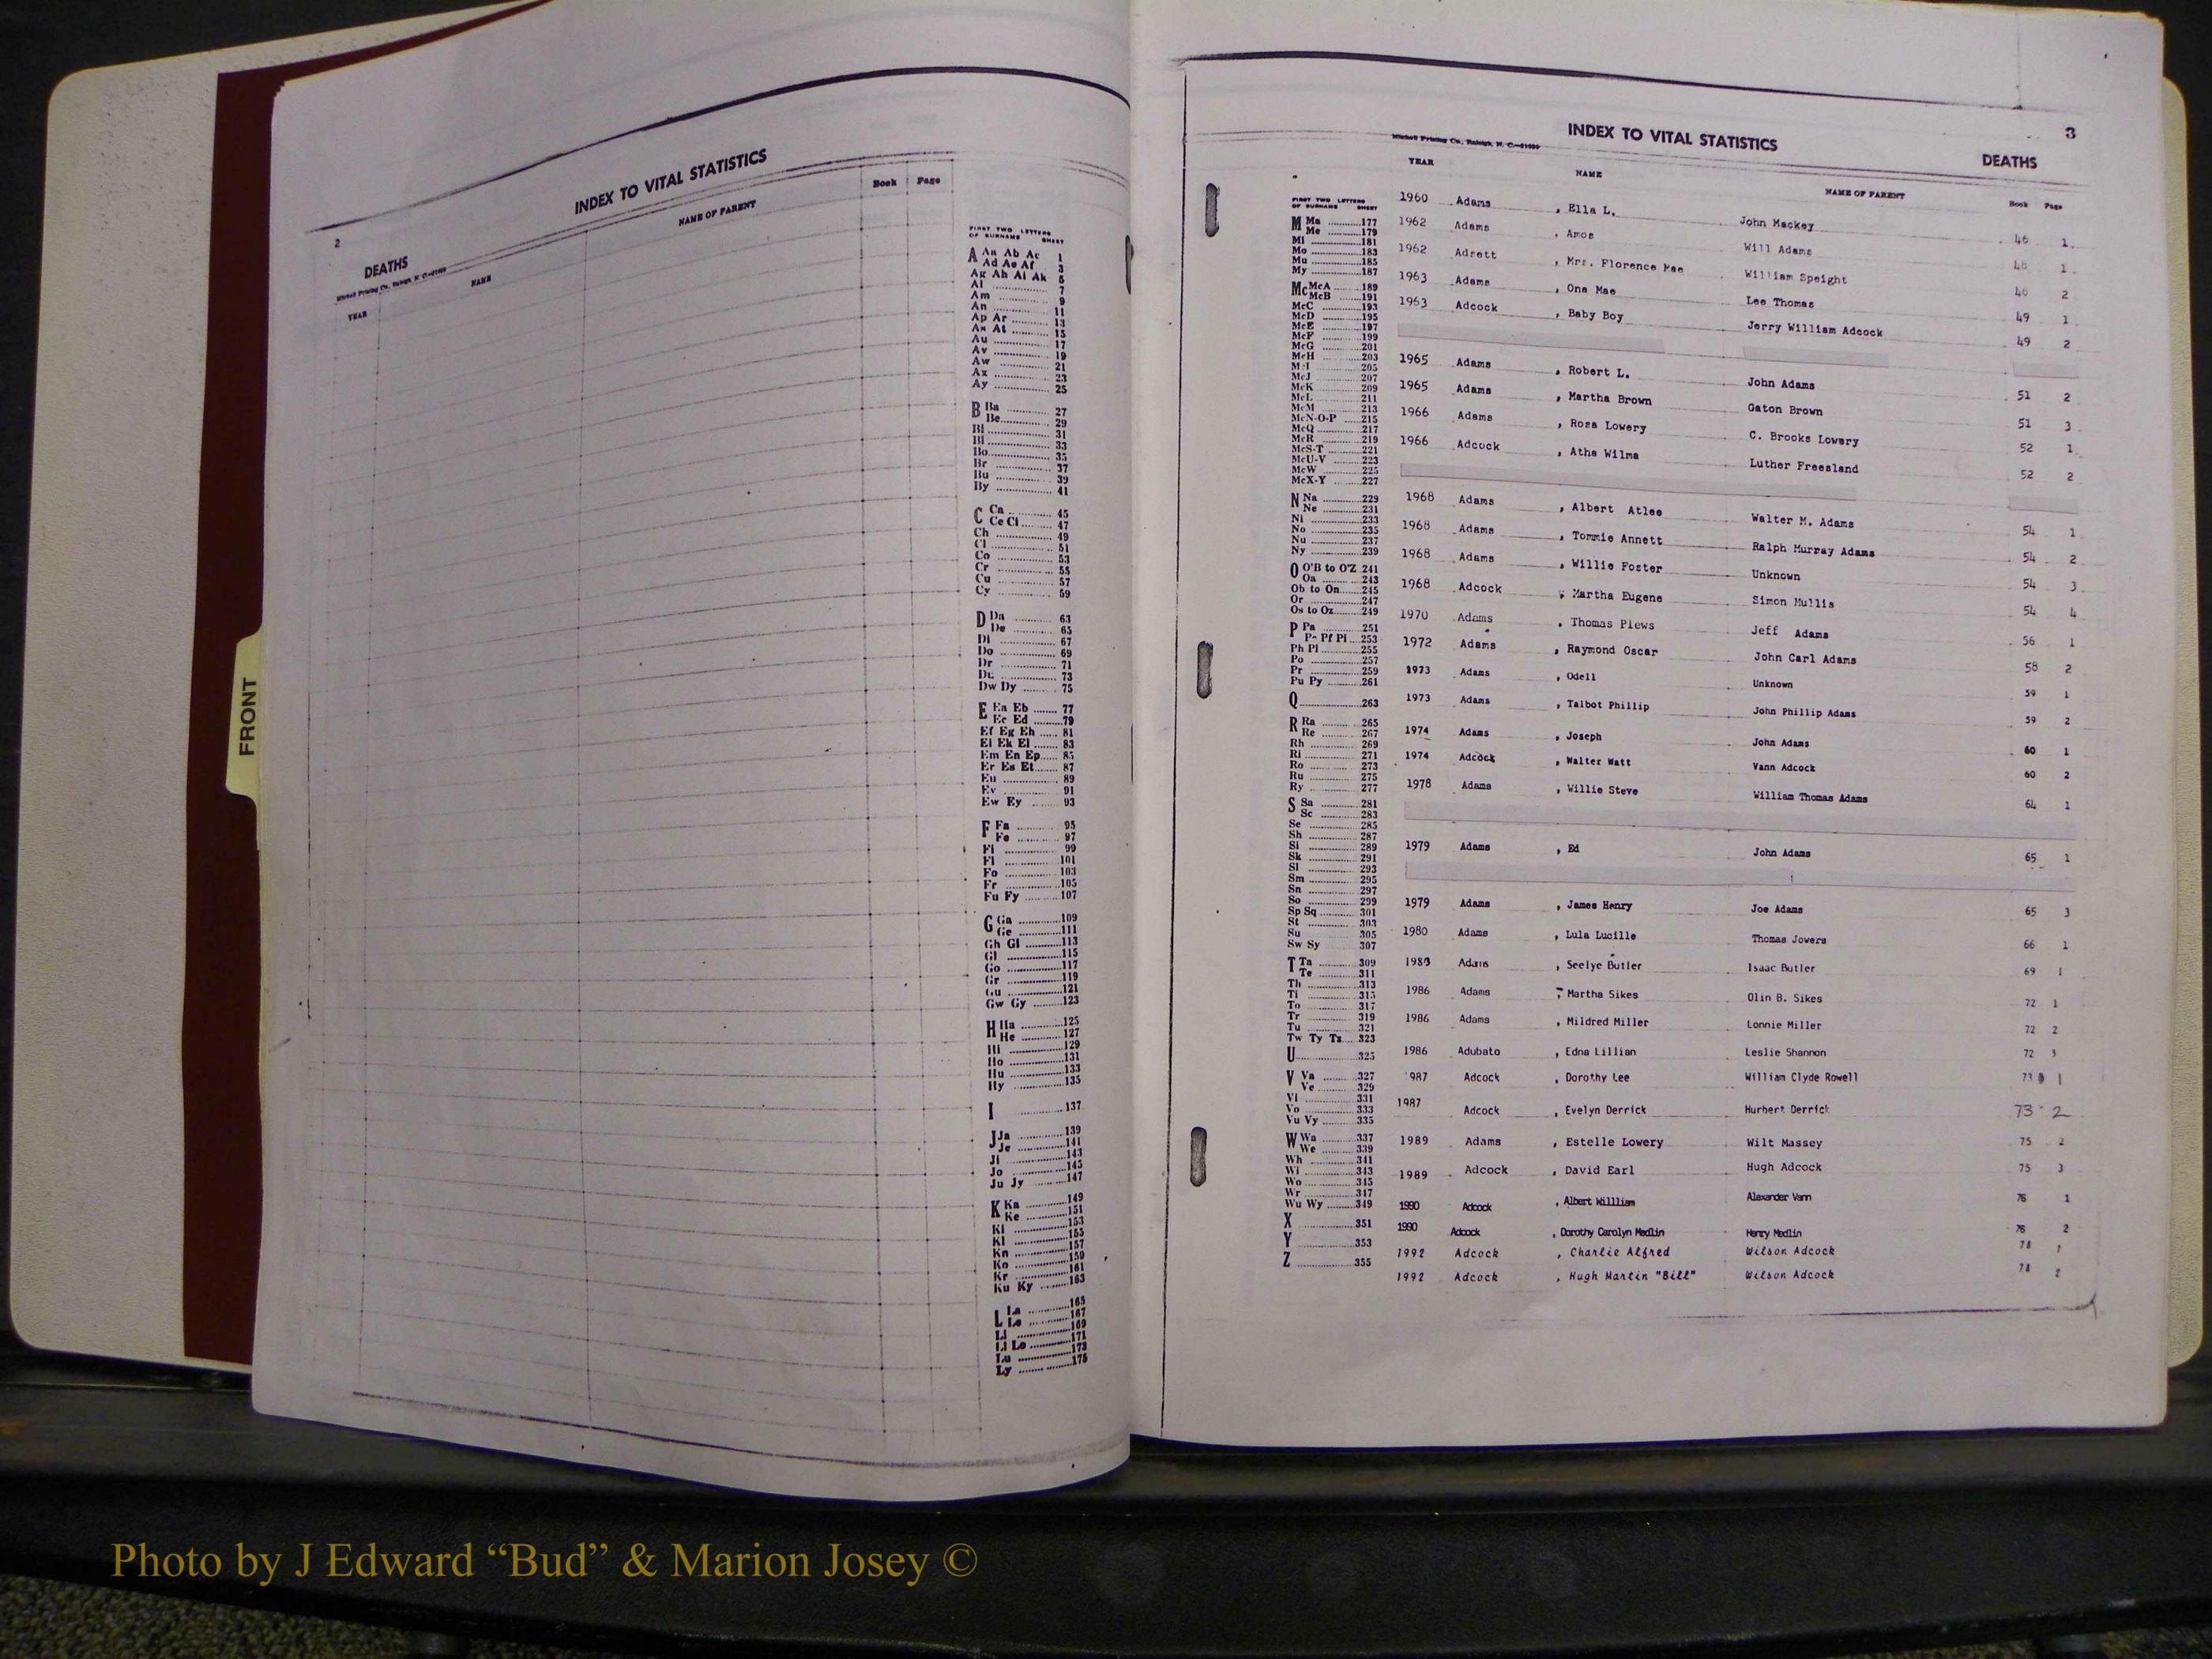 2
INDEX TO VITAL STATISTICS
DEATHS
Mitchell Printing Co., Raleigh, N. C.
YEAR NAME NAME OF PARENT Book Page
FIRST TWO LETTERS
OF SURNAME SHEET
A Aa Ab Ac 1
Ad Ae Af 3
Ag Ah Ai Ak 5
Al 7
Am 9
An 11
Ap Ar 13
As At 15
Au 17
Av 19
Aw 21
Ax 23
Ay 25
B Ba 27
Be 29
Bi 31
Bl 33
Bo 35
Br 37
Bu 39
By 41
C Ca 45
Ce Ci 47
Ch 49
Cl 51
Co 53
Cr 55
Cu 57
Cy 59
D Da 63
De 65
Di 67
Do 69
Dr 71
Du 73
Dw Dy 75
E Ea Eb 77
Ec Ed 79
Ef Eg Eh 81
Ei Ek El 83
Em En Ep 85
Er Es Et 87
Eu 89
Ev 91
Ew Ey 93
F Fa 95
Fe 97
Fi 99
Fl 101
Fo 103
Fr 105
Fu Fy 107
G Ga 109
Ge 111
Gh Gi 113
Gl 115
Go 117
Gr 119
Gu 121
Gw Gy 123
H Ha 125
He 127
Hi 129
Ho 131
Hu 133
Hy 135
I 137
J Ja 139
Je 141
Ji 143
Jo 145
Ju Jy 147
K Ka 149
Ke 151
Ki 153
Kl 155
Kn 157
Ko 159
Kr 161
Ku Ky 163
L La 165
Le 167
Li 169
Ll Lo 171
Lu 173
Ly 175
FRONT
3
INDEX TO VITAL STATISTICS
Mitchell Printing Co., Raleigh, N. C.
DEATHS
YEAR NAME NAME OF PARENT Book Page
FIRST TWO LETTERS
OF SURNAME SHEET
M Ma 177
Me 179
Mi 181
Mo 183
Mu 185
My 187
Mc McA 189
McB 191
McC 193
McD 195
McE 197
McF 199
McG 201
McH 203
McI 205
McJ 207
McK 209
McL 211
McM 213
McN-O-P 215
McQ 217
McR 219
McS-T 221
McU-V 223
McW 225
McX-Y 227
N Na 229
Ne 231
Ni 233
No 235
Nu 237
Ny 239
O O'B to O'Z 241
Oa 243
Ob to On 245
Or 247
Os to Oz 249
P Pa 251
Pe Pf Pi 253
Ph Pl 255
Po 257
Pr 259
Pu Py 261
Q 263
R Ra 265
Re 267
Rh 269
Ri 271
Ro 273
Ru 275
Ry 277
S Sa 281
Sc 283
Se 285
Sh 287
Si 289
Sk 291
Sl 293
Sm 295
Sn 297
So 299
Sp Sq 301
St 303
Su 305
Sw Sy 307
T Ta 309
Te 311
Th 313
Ti 315
To 317
Tr 319
Tu 321
Tw Ty Tz 323
U 325
V Va 327
Ve 329
Vi 331
Vo 333
Vu Vy 335
W Wa 337
We 339
Wh 341
Wi 343
Wo 345
Wr 347
Wu Wy 349
X 351
Y 353
Z 355
1960 Adams , Ella L. John Mackey 46 1
1962 Adams , Amos Will Adams 48 1
1962 Adrett , Mrs. Florence Mae William Speight 48 2
1963 Adams , Ona Mae Lee Thomas 49 1
1963 Adcock , Baby Boy Jerry William Adcock 49 2
1965 Adams , Robert L. John Adams 51 2
1965 Adams , Martha Brown Gaton Brown 51 3
1966 Adams , Rosa Lowery C. Brooks Lowery 52 1
1966 Adcock , Atha Wilma Luther Freesland 52 2
1968 Adams , Albert Atlee Walter M. Adams 54 1
1968 Adams , Tommie Annett Ralph Murray Adams 54 2
1968 Adams , Willie Foster Unknown 54 3
1968 Adcock , Martha Eugene Simon Mullis 54 4
1970 Adams , Thomas Plews Jeff Adams 56 1
1972 Adams , Raymond Oscar John Carl Adams 58 2
1973 Adams , Odell Unknown 59 1
1973 Adams , Talbot Phillip John Phillip Adams 59 2
1974 Adams , Joseph John Adams 60 1
1974 Adcock , Walter Watt Vann Adcock 60 2
1978 Adams , Willie Steve William Thomas Adams 64 1
1979 Adams , Ed John Adams 65 1
1979 Adams , James Henry Joe Adams 65 3
1980 Adams , Lula Lucille Thomas Jowers 66 1
1983 Adams , Seelye Butler Isaac Butler 69 1
1986 Adams , Martha Sikes Olin B. Sikes 72 1
1986 Adams , Mildred Miller Lonnie Miller 72 2
1986 Adubato , Edna Lillian Leslie Shannon 72 3
1987 Adcock , Dorothy Lee William Clyde Rowell 73 1
1987 Adcock , Evelyn Derrick Hurbert Derrick 73 2
1989 Adams , Estelle Lowery Wilt Massey 75 2
1989 Adcock , David Earl Hugh Adcock 75 3
1990 Adcock , Albert Willliam Alexander Vann 76 1
1990 Adcock , Dorothy Carolyn Medlin Henry Medlin 76 2
1992 Adcock , Charlie Alfred Wilson Adcock 78 1
1992 Adcock , Hugh Martin "Bill" Wilson Adcock 78 2
Photo by J Edward “Bud” & Marion Josey ©